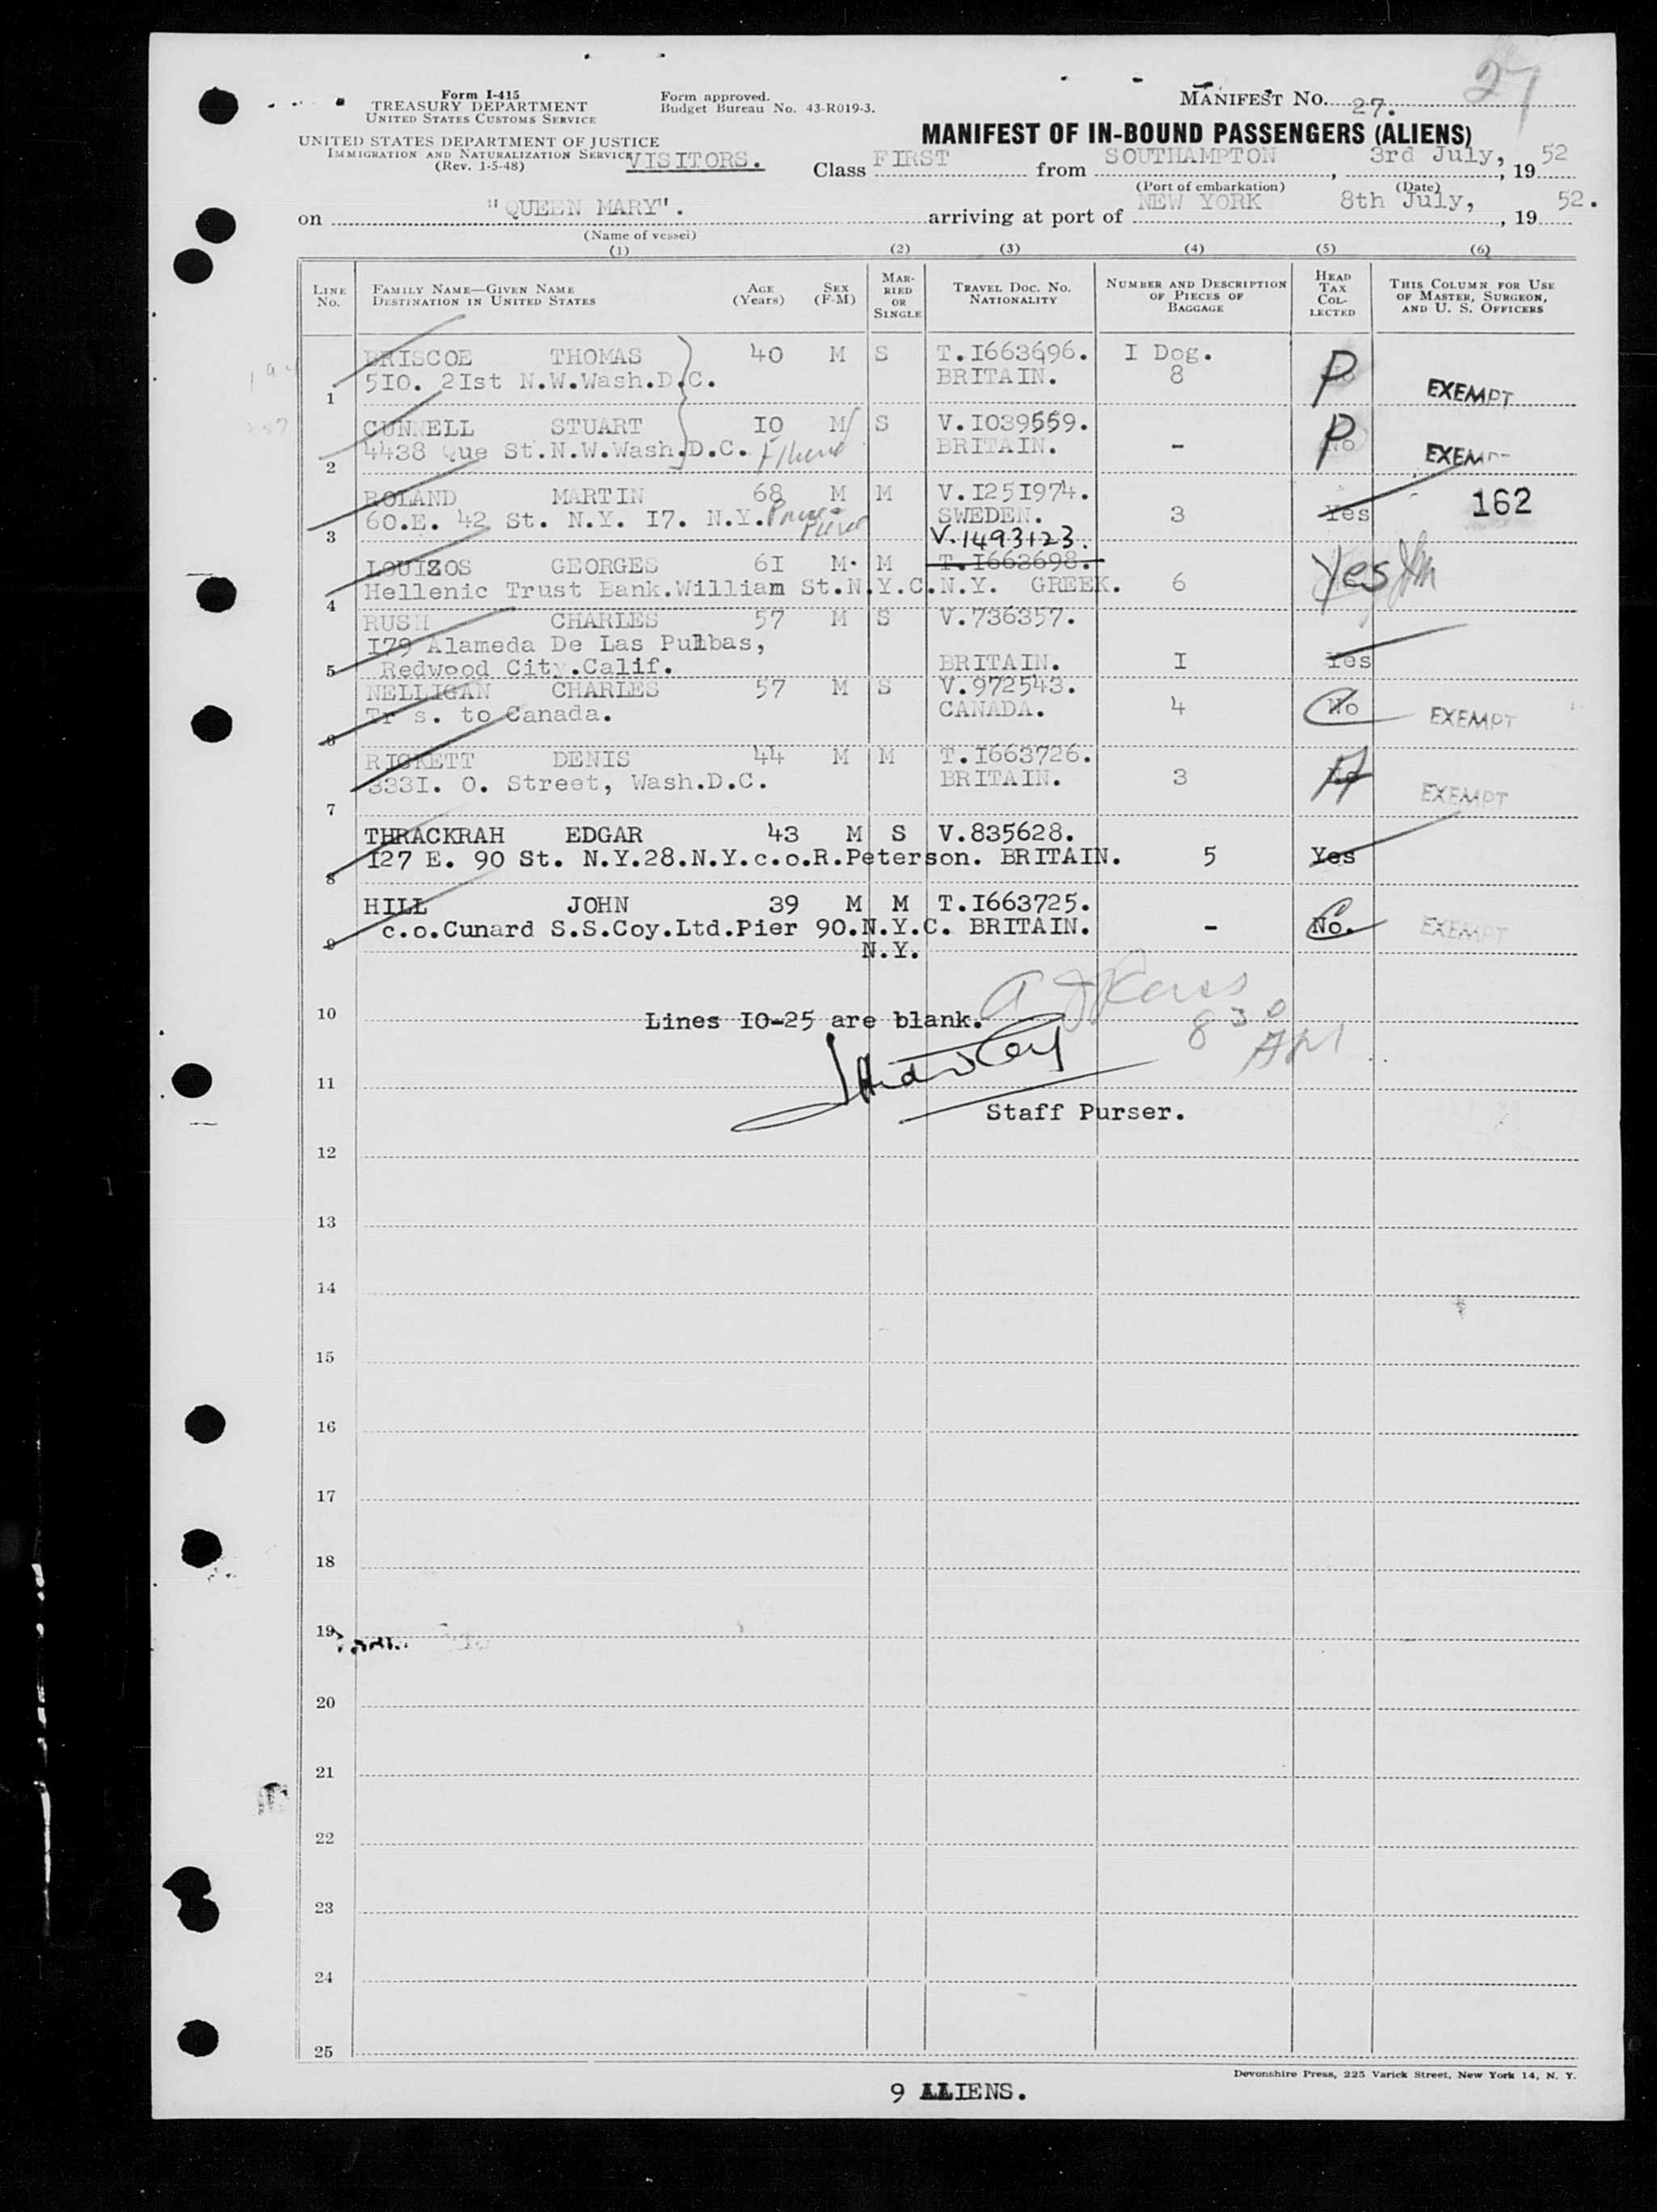 27
Form I-415
TREASURY DEPARTMENT
UNITED STATES CUSTOMS SERVICE
Form approved.
Budget Bureau No. 43-R019-3.
MANIFEST NO. 27.
UNITED STATES DEPARTMENT OF JUSTICE
IMMIGRATION AND NATURALIZATION SERVICE
(Rev. 1-5-48)
VISITORS.
MANIFEST OF IN-BOUND PASSENGERS (ALIENS)
Class FIRST from SOUTHAMPTON, 3rd July, 1952
(Port of embarkation) (Date)
on "QUEEN MARY". arriving at port of NEW YORK 8th July, 1952.
(Name of vessel)
(1) (2) (3) (4) (5) (6)
LINE No. FAMILY NAME—GIVEN NAME DESTINATION IN UNITED STATES AGE (Years) SEX (F-M) MARRIED OR SINGLE TRAVEL DOC. NO. NATIONALITY NUMBER AND DESCRIPTION OF PIECES OF BAGGAGE HEAD TAX COLLECTED THIS COLUMN FOR USE OF MASTER, SURGEON, AND U. S. OFFICERS
BRISCOE THOMAS 40 M S T.I663696. I Dog. P
1 5I0. 2Ist N.W.Wash.D.C. BRITAIN. 8 EXEMPT
CUNNELL STUART I0 M S V.I039559. P
2 4438 Que St.N.W.Wash.D.C. BRITAIN. - No EXEMPT
ROLAND MARTIN 68 M M V.I25I974. 162
3 60.E. 42 St. N.Y. I7. N.Y. SWEDEN. 3 Yes
V.1493123.
LOUIZOS GEORGES 6I M. M T.I663698. Yes
4 Hellenic Trust Bank.William St.N.Y.C.N.Y. GREEK. 6
RUSH CHARLES 57 M S V.736357.
I79 Alameda De Las Pulbas,
5 Redwood City.Calif. BRITAIN. I Yes
NELLIGAN CHARLES 57 M S V.972543.
6 Tr s. to Canada. CANADA. 4 No EXEMPT
RICKETT DENIS 44 M M T.I663726.
7 333I. O. Street, Wash.D.C. BRITAIN. 3 EXEMPT
THRACKRAH EDGAR 43 M S V.835628.
8 I27 E. 90 St. N.Y.28.N.Y.c.o.R.Peterson. BRITAIN. 5 Yes
HILL JOHN 39 M M T.I663725.
9 c.o.Cunard S.S.Coy.Ltd.Pier 90.N.Y.C. BRITAIN. - No. EXEMPT
N.Y.
10 Lines IO-25 are blank.
830 AM
11
Staff Purser.
12
13
14
15
16
17
18
19
20
21
22
23
24
25
Devonshire Press, 225 Varick Street, New York 14, N. Y.
9 ALIENS.